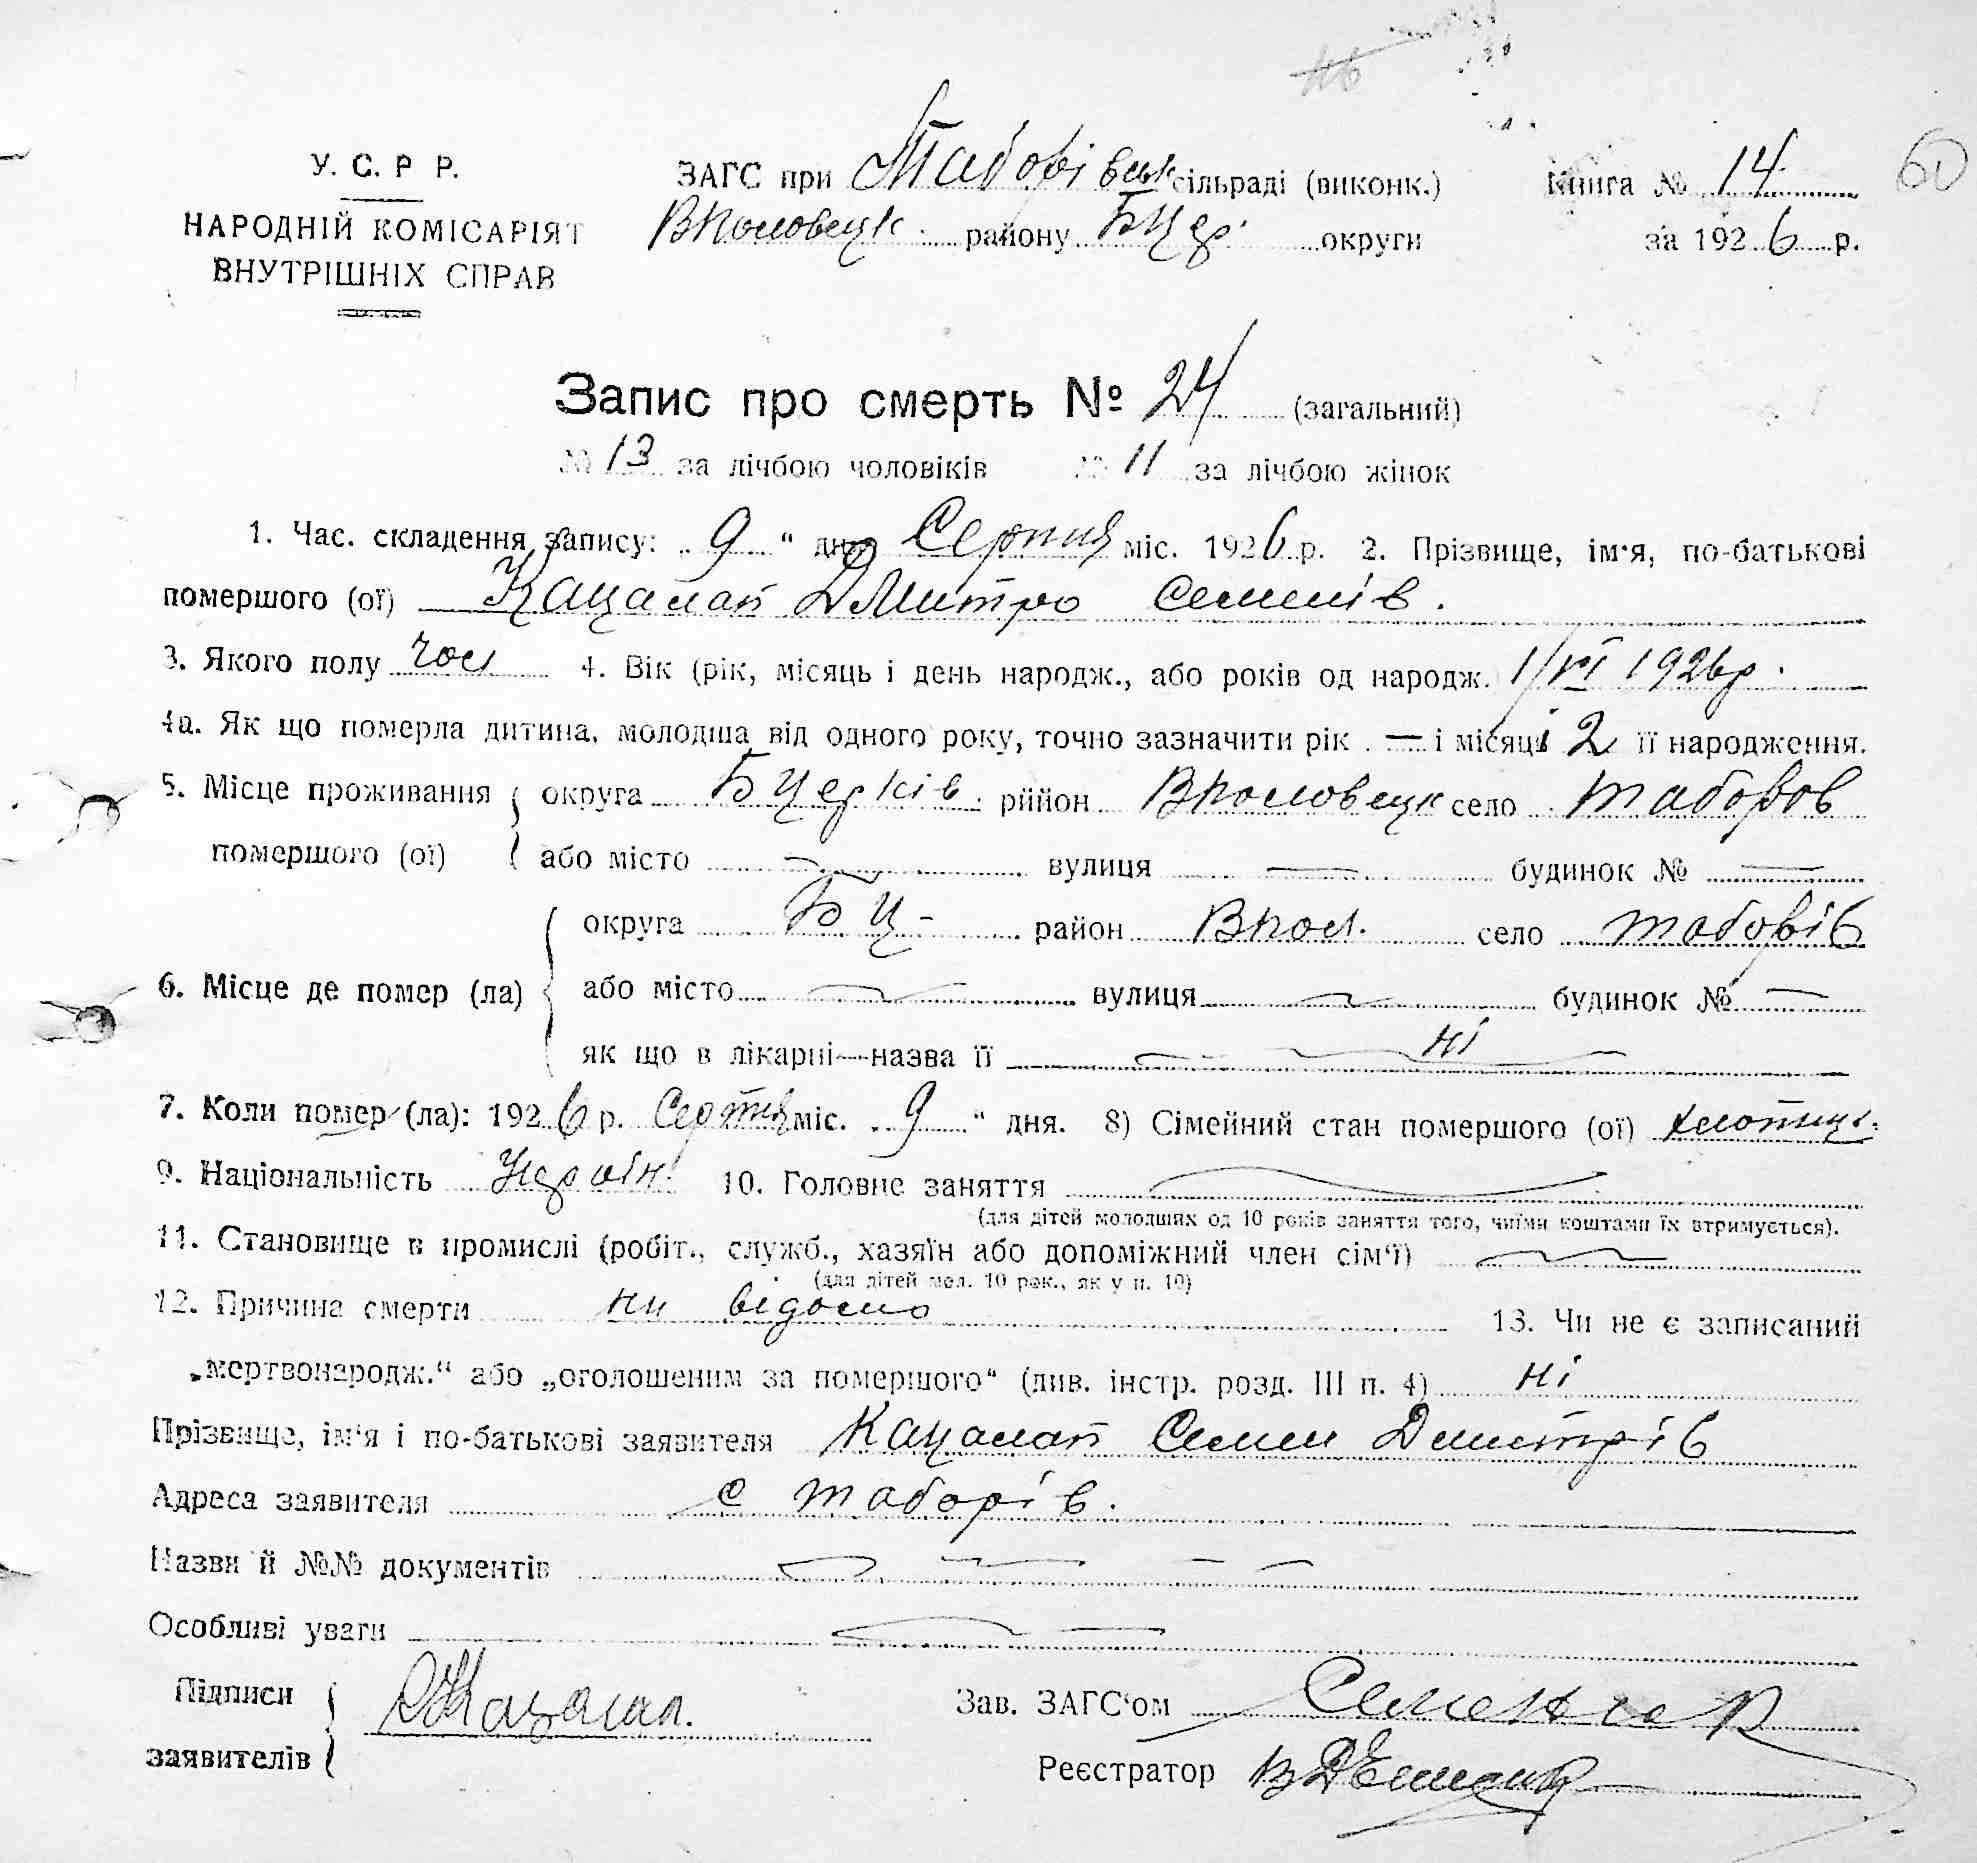 У. С. Р Р.
НАРОДНІЙ КОМІСАРІЯТ
ВНУТРІШНІХ СПРАВ
ЗАГС при Таборівськ сільраді (виконк.)
Вполовецьк. району БЦер. округи
Книга № 14
60
за 1926 р.
Запис про смерть № 24 (загальний)
№ 13 за лічбою чоловіків № 11 за лічбою жінок
1. Час. складення запису: „ 9 “ дня Серпня міс. 1926 р. 2. Прізвище, ім'я, по-батькові
помершого (ої) Кацалап Дмитро Семенів.
3. Якого полу чол 4. Вік (рік, місяць і день народж., або років од народж. 1/VI 1926р.
4а. Як що померла дитина, молодша від одного року, точно зазначити рік — і місяці 2 її народження.
5. Місце проживання округа БЦерків. район Вполовецьк село Таборов
помершого (ої) або місто — вулиця — будинок № —
округа БЦ- район Впол. село Таборів
6. Місце де помер (ла) або місто — вулиця — будинок № —
як що в лікарні—назва її ні
7. Коли помер (ла): 1926 р. Серпня міс. „ 9 “ дня. 8) Сімейний стан помершого (ої) хлопець.
9. Національність Україн. 10. Головне заняття —
(для дітей молодших од 10 років заняття того, чиїми коштами їх втримується).
11. Становище в промислі (робіт., служб., хазяїн або допоміжний член сім'ї) —
(для дітей мол. 10 рок., як у п. 10)
12. Причина смерти ни відомо 13. Чи не є записаний
„мертвонародж.“ або „оголошеним за помершого“ (див. інстр. розд. III п. 4) ні
Прізвище, ім'я і по-батькові заявителя Кацалап Семен Дмитрів
Адреса заявителя с Таборів.
Назви й №№ документів —
Особливі уваги —
Підписи
заявителів
Зав. ЗАГС'ом
Реєстратор